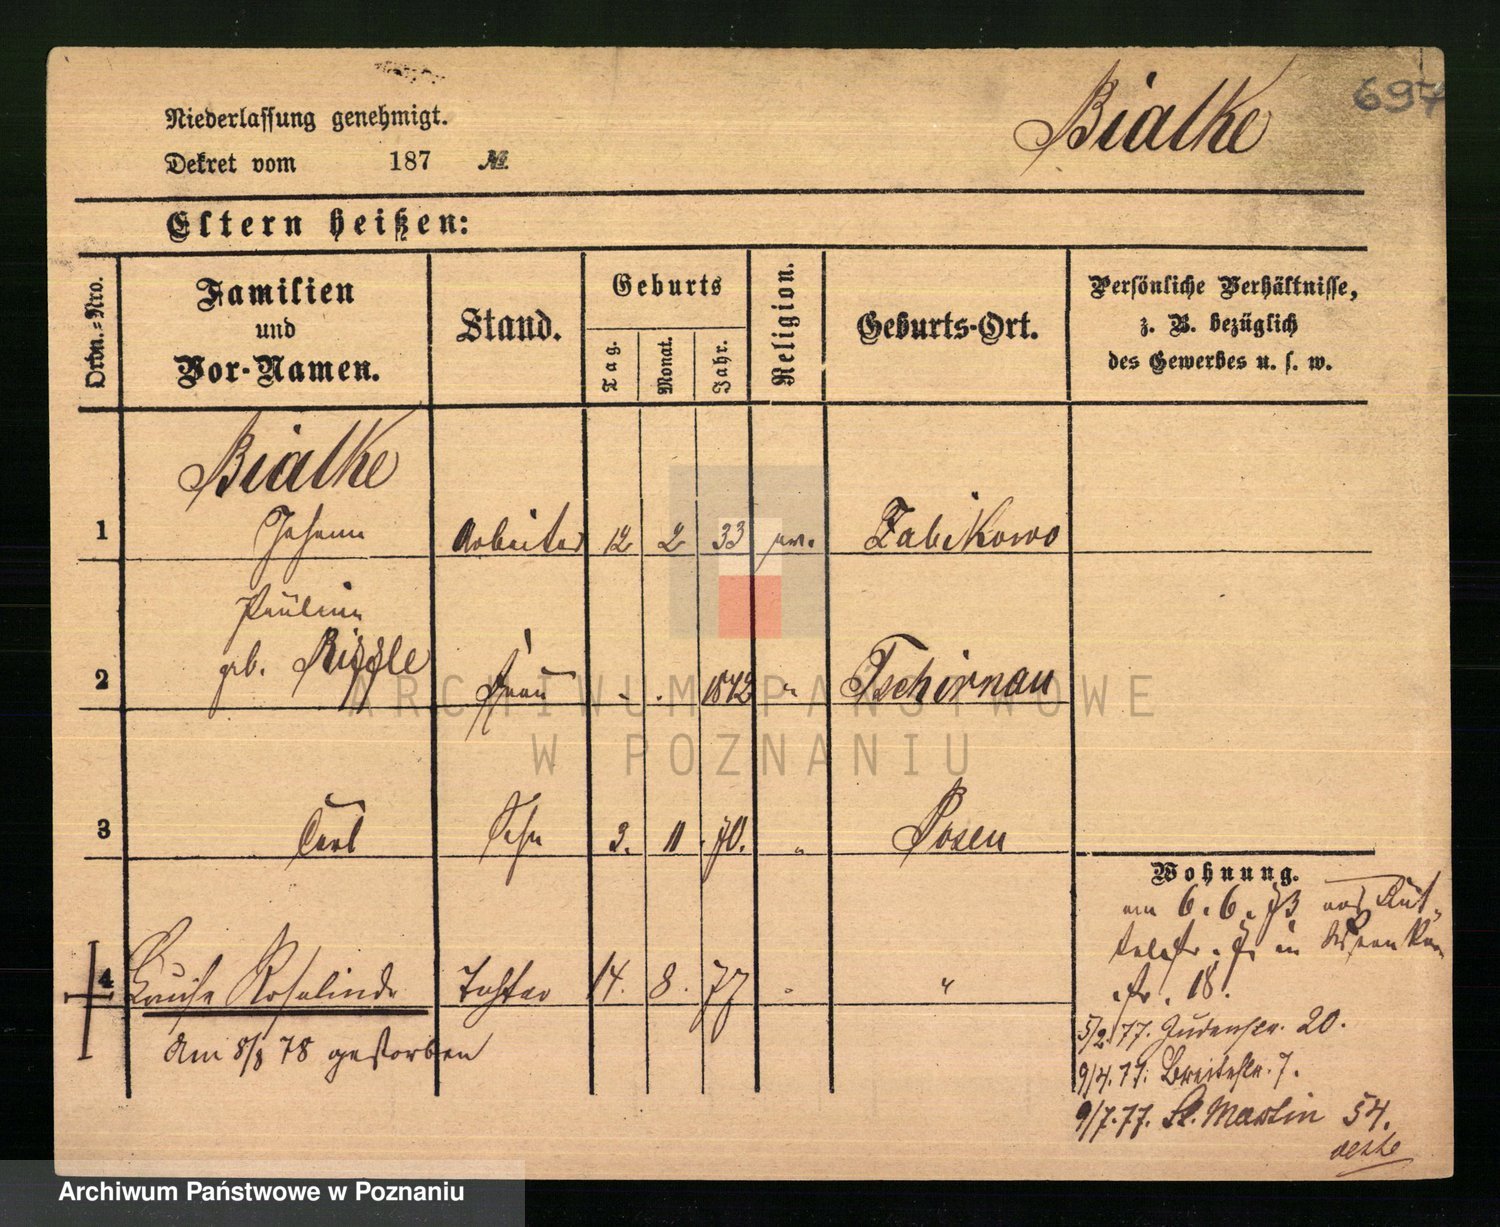 697
Niederlassung genehmigt.
Bialke
Dekret vom 187 №
Eltern heißen:
Ordn.-Nro.
Familien und Vor-Namen.
Stand.
Geburts
Tag.
Monat.
Jahr.
Religion.
Geburts-Ort.
Persönliche Verhältnisse,
z. B. bezüglich
des Gewerbes u. s. w.
Bialke
1 Johann Arbeiter 12 2 33 Zabikowo
Pauline
2 geb. Frau 1842 Tschirnau
3 Carl Sohn 3. 11 70. " Posen
4 Louise Rosalinde Tochter 14. 8. 77 " "
Am 8/8 78 gestorben
Wohnung.
am 6. 6. 73 aus
in
str. 18.
5/2. 77. Judenstr. 20.
9/4. 77. Breitestr. 7.
9/7. 77. St. Martin 54.
ARCHIWUM PAŃSTWOWE
W POZNANIU
Archiwum Państwowe w Poznaniu